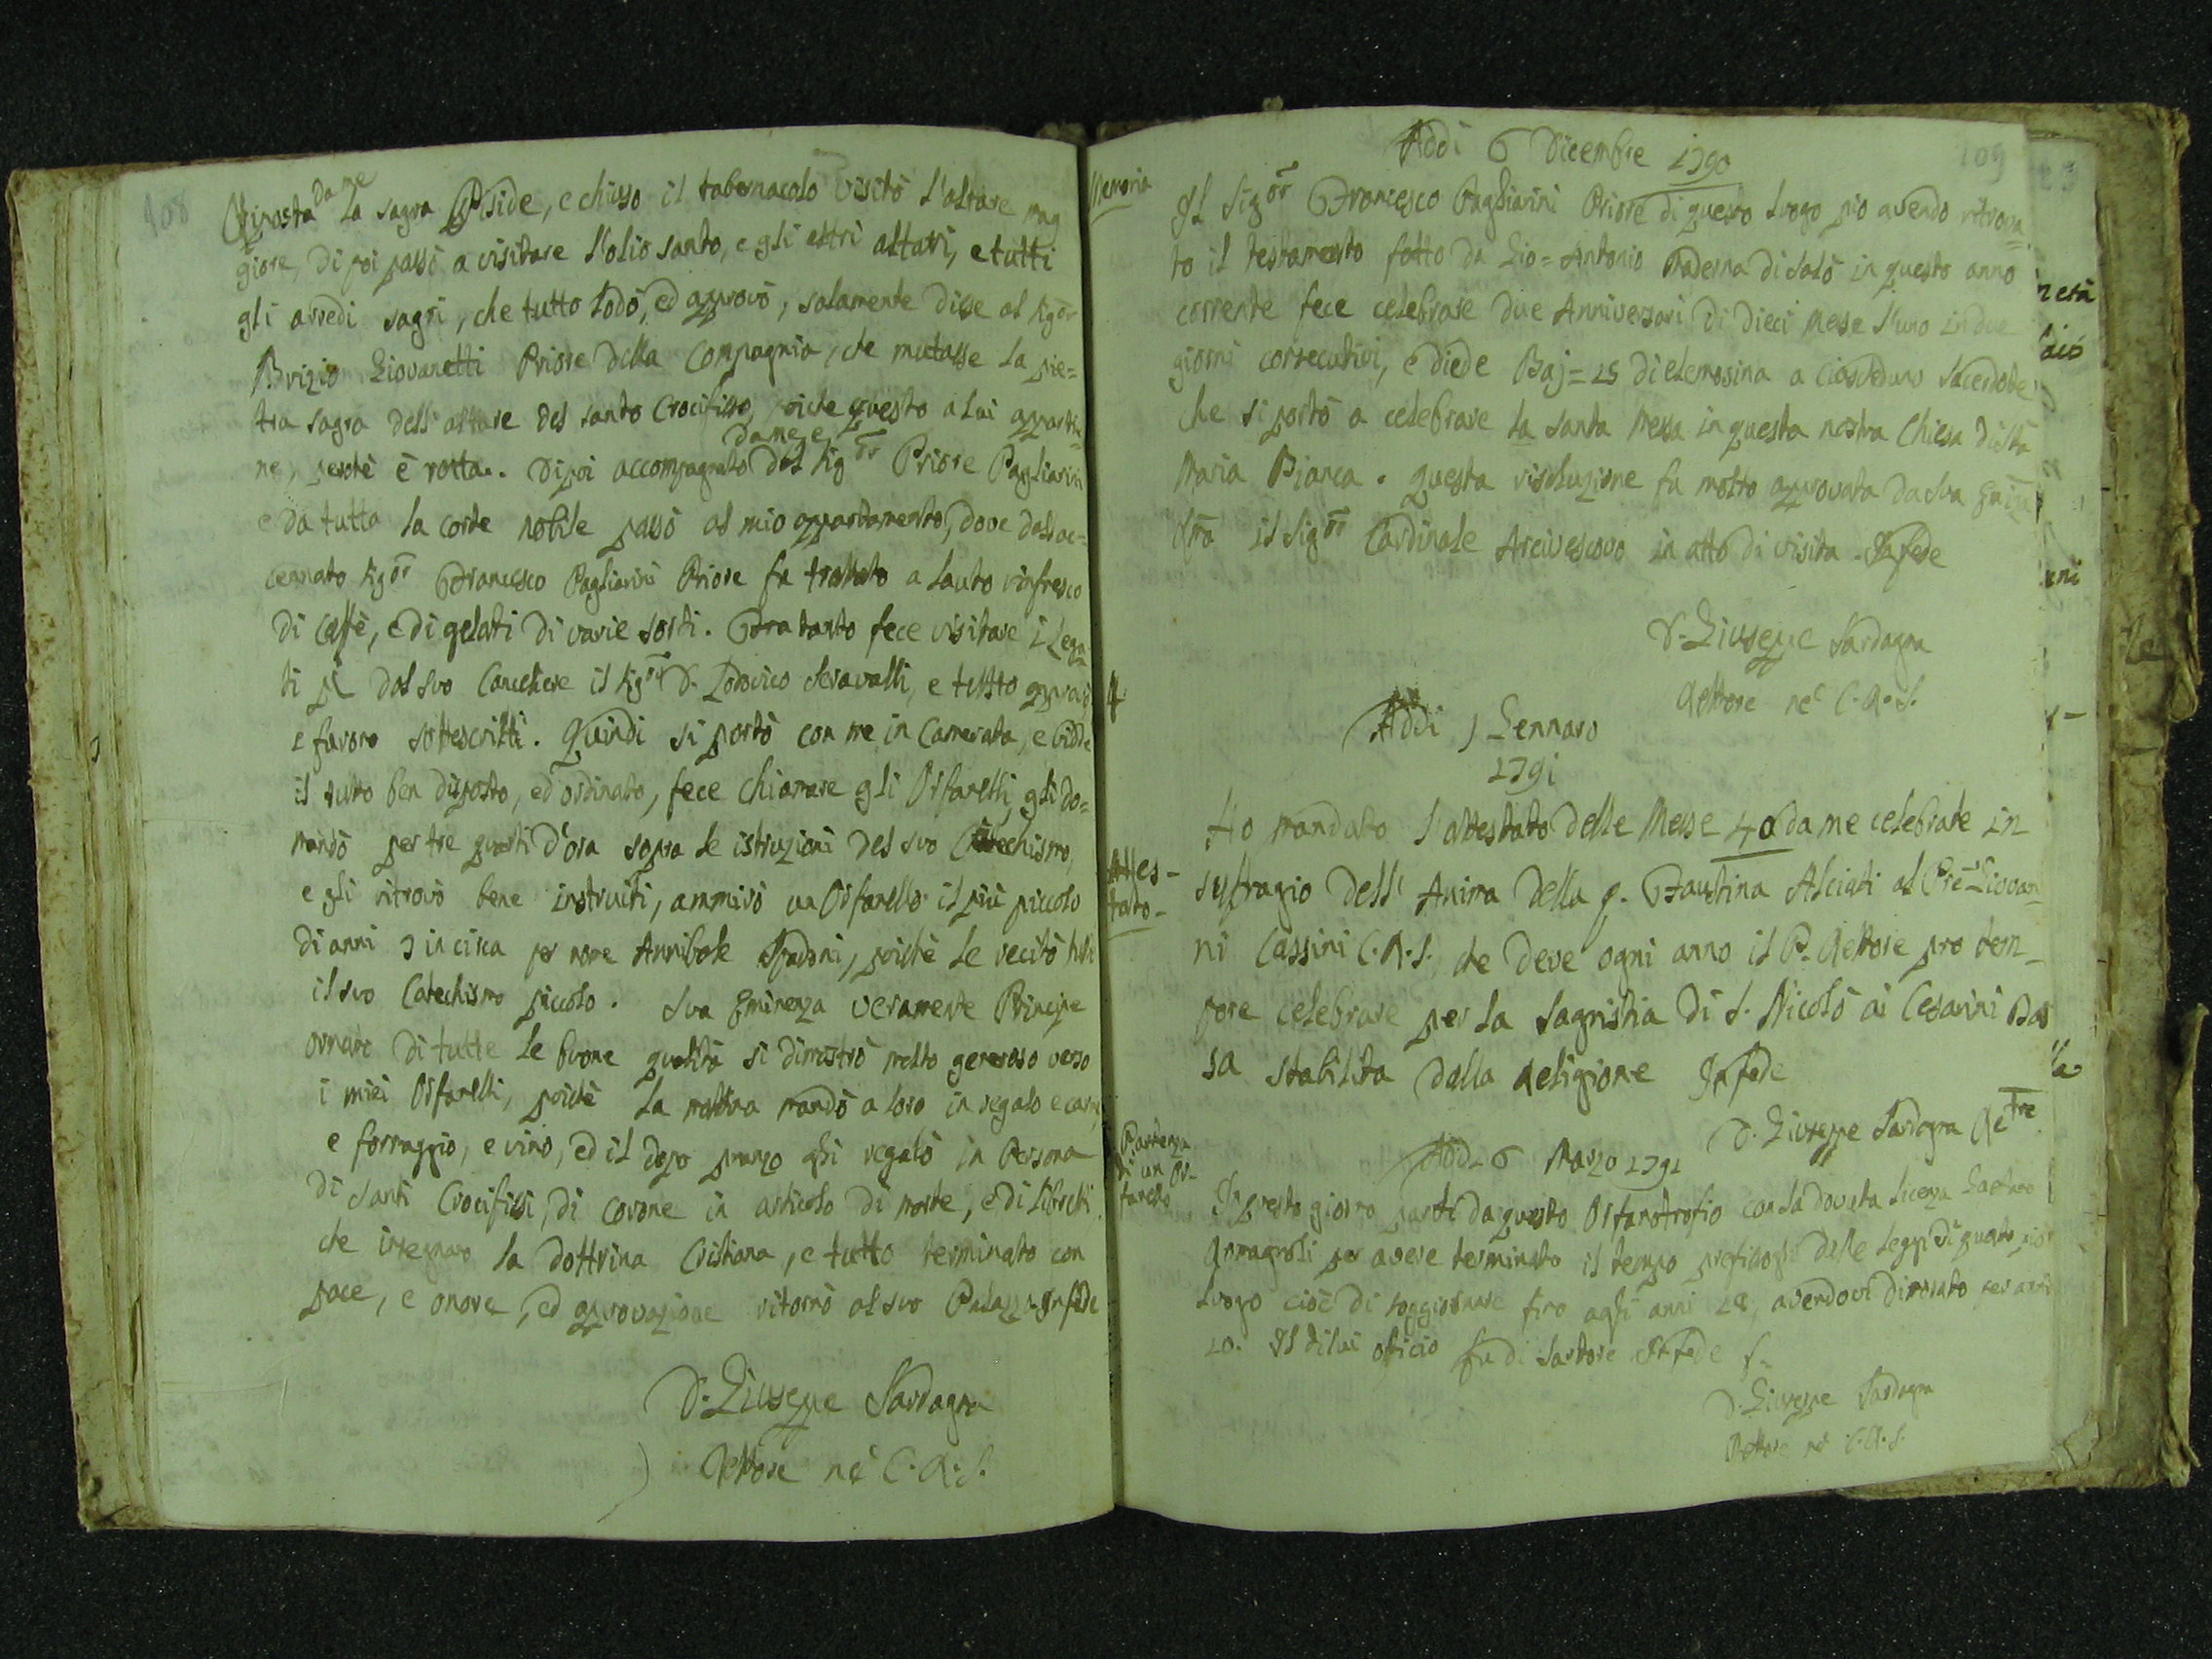 108
Riposta da me la sagra Pisside, e chiuso il tabernacolo visitò l'altare mag
giore, di poi passò a visitare l'olio santo, e gli altri altari, e tutti
gli arredi sagri, che tutto lodò, ed approvò, solamente disse al Sigor
Brizio Giovanetti Priore della Compagnia, che mutasse la pie=
tra sagra dell'altare del santo Crocifisso, poiche questo a lui apparti=
ne, perchè è rotta. Dipoi accompagnato da me, e dal Sigor Priore Pagliarini
e da tutta la corte nobile passò al mio appartamento, dove dall'ac=
cennato Sigor Francesco Pagliarini Priore fu trattato a lauto rinfresco
di caffè, e di gelati di varie sorti. Fra tanto fece visitare i Lega=
ti pii dal suo Cancelliere il Sigor D. Lodovico Seravalli, e tutto approvò
e furono sottoscritti. Quindi si portò con me in Camerata, e vidde
il tutto ben disposto, ed ordinato, fece chiamare gli Orfanelli, gli do=
mandò per tre quarti d'ora sopra le istruzioni del suo Catechismo,
e gli ritrovò bene instruiti, ammirò un Orfanello il più piccolo
di anni 7 in circa per nome Annibale Spadoni, poichè le recitò tutto
il suo Catechismo piccolo. Sua Eminenza veramente Principe
ornato di tutte le buone qualità si dimostrò molto generoso verso
i miei Orfanelli, poichè la mattina mandò a loro in regalo e carne,
e formaggio, e vino, ed il dopo pranzo gli regalò in Persona
di Santi Crocifissi, di corone in articolo di morte, e di libretti
che insegnano la dottrina Cristiana, e tutto terminato con
pace, e onore, ed approvazione ritornò al suo Palazzo. In fede
D. Giuseppe Sardagna
Rettore ne' C.R.S.
109
Addi 6 Dicembre 1790
Memoria
Il Sigor Francesco Pagliarini Priore di questo luogo pio avendo ritrova=
to il testamento fatto da Gio= Antonio Maderna di Salò in questo anno
corrente fece celebrare due Anniversari di dieci Messe l'uno in due
giorni consecutivi, e diede Baj= 25 di elemosina a ciascuno Sacerdote
che si portò a celebrare la santa Messa in questa nostra Chiesa di Sta
Maria Bianca. Questa risoluzione fu molto approvata da sua Emza
Rma il Sigor Cardinale Arcivescovo in atto di visita. In fede
D. Giuseppe Sardagna
Rettore ne' C.R.S.
Addi 1 Gennaro
1791
Attes-
tato-
Ho mandato l'attestato delle Messe 40 da me celebrate in
suffragio dell'Anima della q. Faustina Alciati al Pre Giovan=
ni Cassini C.R.S. che deve ogni anno il P. Rettore pro tem=
pore celebrare per la Sagristia di S. Nicolò ai Cesarini
sa stabilita dalla Religione In fede
D. Giuseppe Sardagna Retre
Addi 6 Marzo 1791
Partenza
di un Or-
fanello
In questo giorno partì da questo Orfanotrofio con la dovuta licenza Gaetano
Romagnoli per avere terminato il tempo prefissogli dalle leggi di questo pio
luogo cioè di soggiornare fino agli anni 18, avendovi dimorato per anni
10. Il di lui officio fu di sartore In fede
D. Giuseppe Sardagna
Rettore ne' C.R.S.